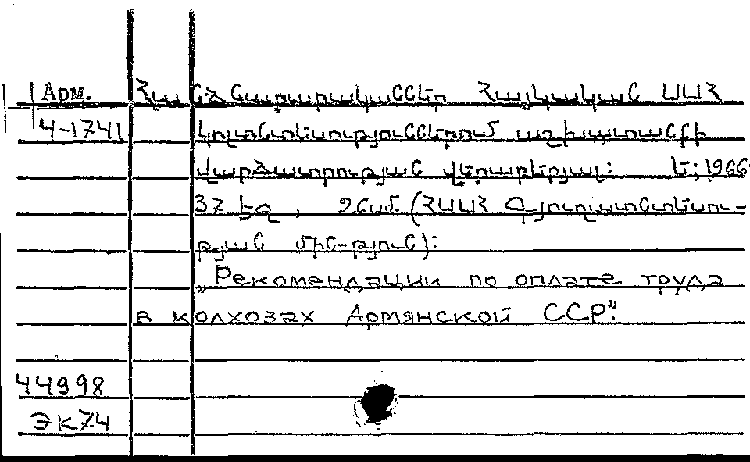 Арм. Հանձնարարականներ Հայկական ՍՍՀ
4-1741 կոլտնտեսություններում աշխատանքի
վարձատրության վերաբերյալ: Ե; 1966
37 էջ, 26սմ. (ՀՍՍՀ Գյուղատնտեսու-
թյան մին-թյուն):
„Рекомендации по оплате труда
в колхозах Армянской ССР".
44998
ЭК74